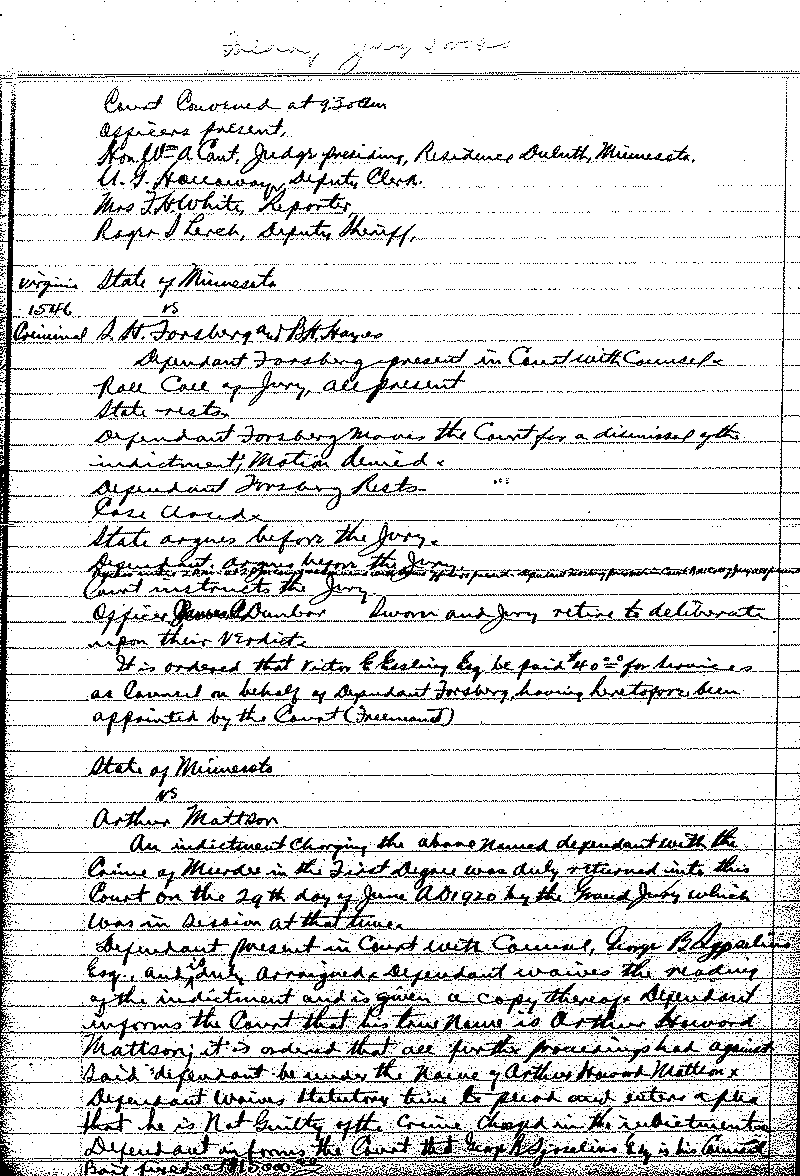 Friday July
Court Convened at 930 am
Officers present,
Hon. Wm A Cant, Judge presiding, Residence Duluth, Minnesota.
U. G. Holloway, Deputy Clerk.
Mrs F H White, Reporter
Roger S Lerch, Deputy Sheriff,
Virginia State of Minnesota
1546 vs
Criminal S. H. Forsberg and B. H. Hayes
Defendant Forsberg present in Court with Counsel.
Roll Call of Jury, all present
State rests
Defendant Forsberg Moves the Court for a dismissal of the
indictment, Motion denied.
Defendant Forsberg Rests
Case Closed.
State argues before the Jury.
Defendant argues before the Jury.
Court instructs the Jury
Officer James Dunbar Sworn and Jury retire to deliberate
upon their Verdict.
It is ordered that Victor E Essling Esq be paid $40.00 for services
as Counsel on behalf of Defendant Forsberg, having heretofore been
appointed by the Court (Freemand)
State of Minnesota
vs
Arthur Mattson
An indictment charging the above named defendant with the
Crime of Murder in the First Degree was duly returned into this
Court on the 29th day of June AD 1920 by the Grand Jury which
was in session at that time.
Defendant present in Court with Counsel, George B Sjoselius
Esq., and is duly arraigned. Defendant waives the reading
of the indictment and is given a copy thereof. Defendant
informs the Court that his true Name is Arthur Howard
Mattson; it is ordered that all further proceedings had against
said defendant be under the Name of Arthur Howard Mattson.
Defendant Waives Statutory time to plead and enters a plea
that he is Not Guilty of the Crime Charged in the indictment.
Defendant informs the Court that George B Sjoselius Esq is his Counsel
Bail fixed at